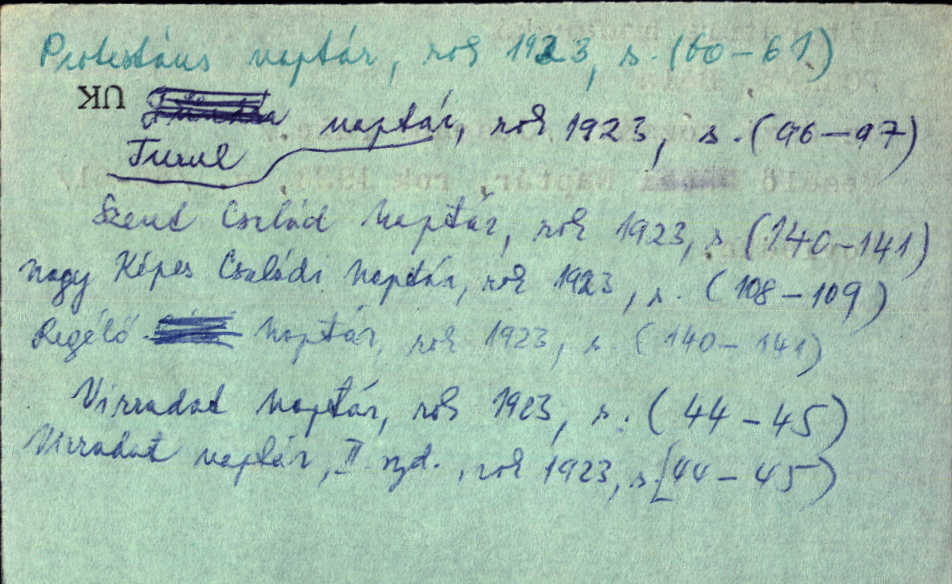 Protestáns naptár, rok 1923, s. (60-61)
UK naptár, rok 1923, s. (96-97)
Turul
Szent Család Naptár, rok 1923, s. (140-141)
Nagy Képes Családi Naptár, rok 1923, s. (108-109)
Regélő Naptár, rok 1923, s. (140-141)
Virradat Naptár, rok 1923, s. (44-45)
Virradat naptár, II. vyd., rok 1923, s. (44-45)